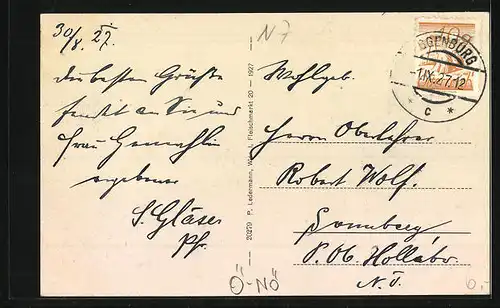 30/8. 27.
N7
Die besten Grüße
sendet an Sie und
Frau Gemahlin
ergebener
S. Gläser
Pfr.
20279 P. Ledermann, Wien I, Fleischmarkt 20 — 1927
GGENBURG
1.IX.27.12
* c *
Wohlgeb.
Herrn Oberlehrer
Robert Wolf.
Sonnberg
P. Ob. Hollabr.
N.Ö.
Ö-NÖ
6.